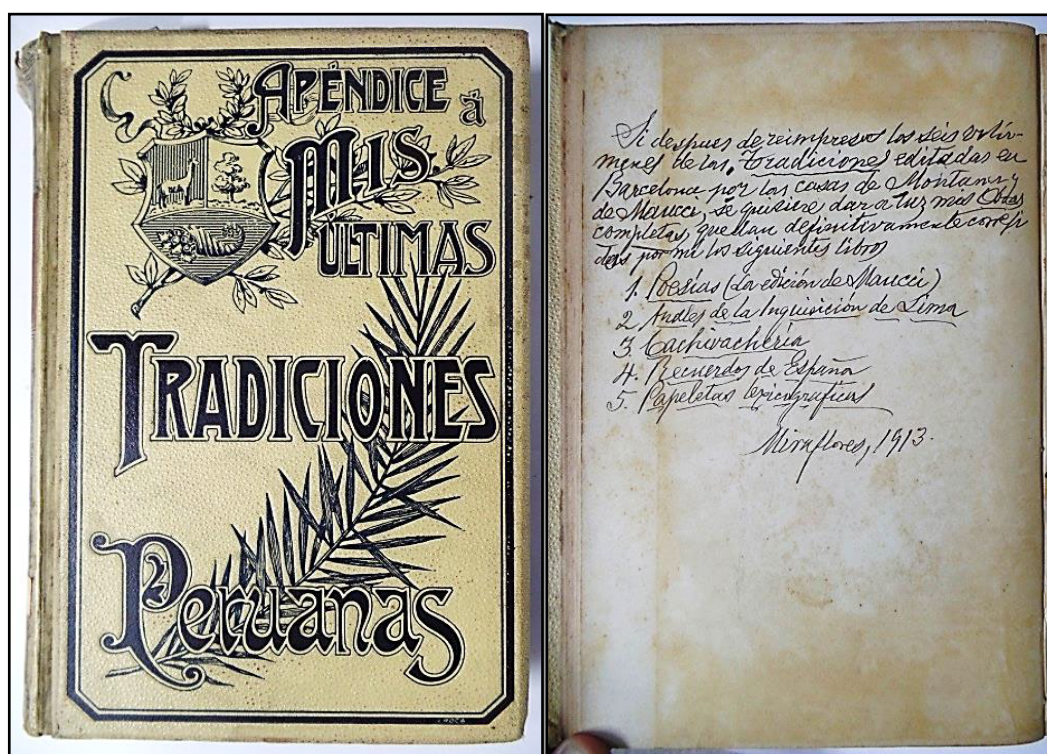 APÉNDICE á
MIS
ÚLTIMAS
TRADICIONES
Peruanas
Si despues de reimpresos los seis volú-
menes de las, tradiciones editadas en
Barcelona por las casas de Montaner y
de Maucci, se quisiere dar a luz mis Obras
completas, quedan definitivamente corregi
das por mi los siguientes libros
1. Poesías (La edición de Maucci)
2 Anales de la Inquisición de Lima
3. Cachivachería
4. Recuerdos de España
5. Papeletas lexicográficas
Miraflores, 1913.